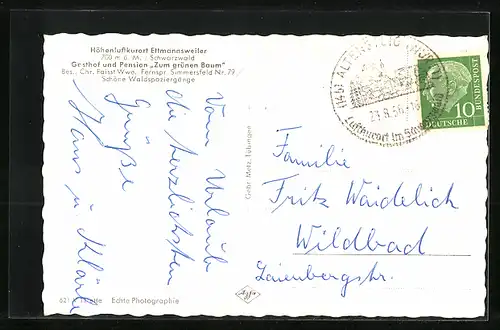 Höhenluftkurort Ettmannsweiler
700 m ü. M. : Schwarzwald
Gasthof und Pension „Zum grünen Baum"
Bes.: Chr. Faisst Wwe. Fernspr. Simmersfeld Nr. 79 /
Schöne Waldspaziergänge
Vom Urlaub
die herzlichsten
Grüße
Hans u. Klärle
Gebr. Metz, Tübingen
(14b) ALTENSTEIG
23.8.56
Luftkurort im
10
DEUTSCHE BUNDESPOST
Familie
Fritz Waidelich
Wildbad
Laienbergstr.
Echte Photographie
Agfa